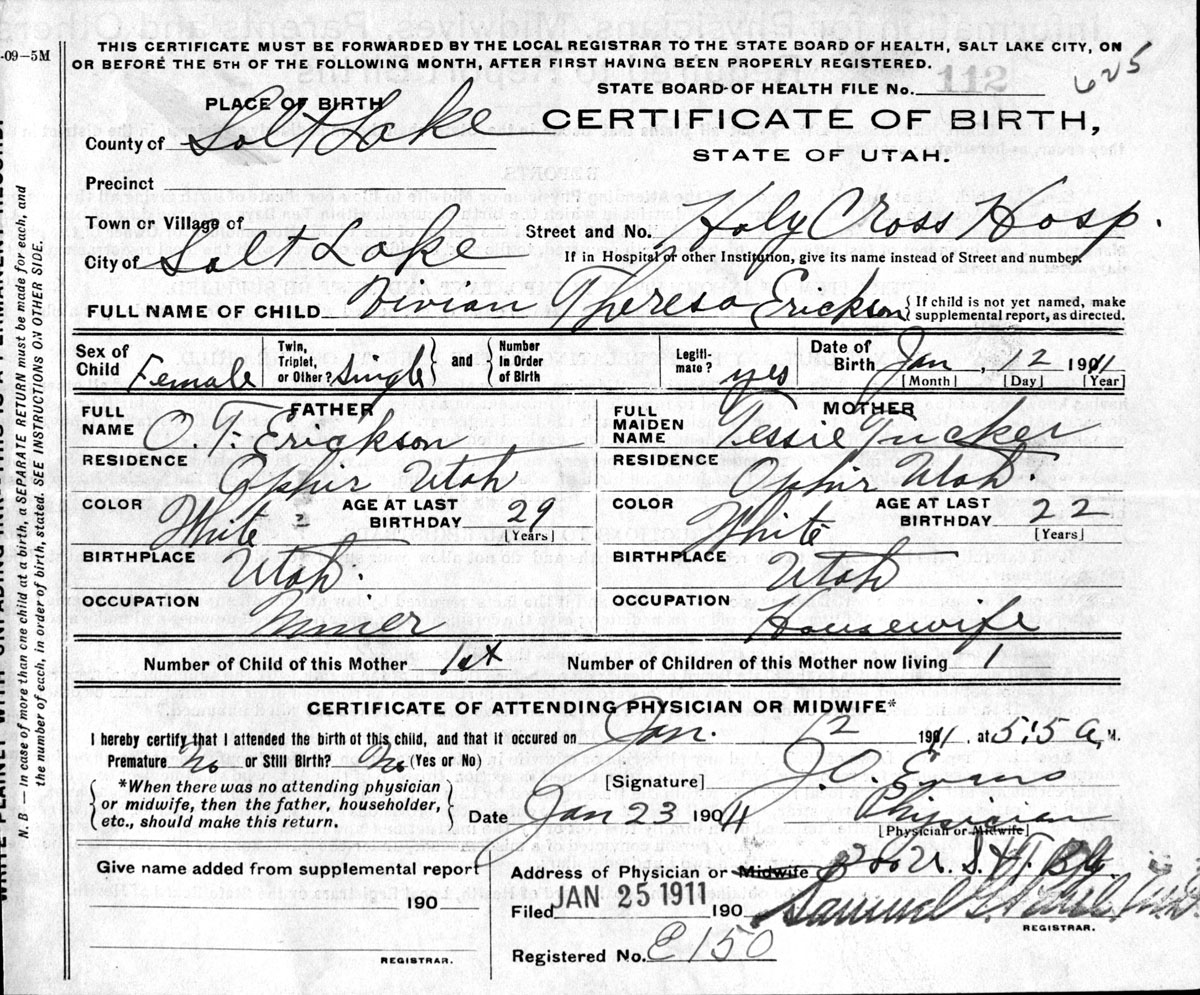 -09-5M
THIS CERTIFICATE MUST BE FORWARDED BY THE LOCAL REGISTRAR TO THE STATE BOARD OF HEALTH, SALT LAKE CITY, ON
OR BEFORE THE 5TH OF THE FOLLOWING MONTH, AFTER FIRST HAVING BEEN PROPERLY REGISTERED.
STATE BOARD OF HEALTH FILE No. 112 625
PLACE OF BIRTH
County of Salt Lake
CERTIFICATE OF BIRTH,
STATE OF UTAH.
Precinct
Town or Village of
Street and No. Holy Cross Hosp.
City of Salt Lake
If in Hospital or other Institution, give its name instead of Street and number.
FULL NAME OF CHILD Vivian Theresa Erickson { If child is not yet named, make
supplemental report, as directed.
Sex of Child Female Twin, Triplet, or Other? Single } and { Number in Order of Birth Legiti- mate? yes Date of Birth Jan, 12 1911
[Month] [Day] [Year]
FATHER
FULL NAME O. T. Erickson
RESIDENCE
Ophir Utah
COLOR White AGE AT LAST BIRTHDAY 29
[Years]
BIRTHPLACE Utah.
OCCUPATION Miner
MOTHER
FULL MAIDEN NAME Tessie Tucker
RESIDENCE
Ophir Utah.
COLOR White AGE AT LAST BIRTHDAY 22
[Years]
BIRTHPLACE Utah
OCCUPATION Housewife
Number of Child of this Mother 1st Number of Children of this Mother now living 1
CERTIFICATE OF ATTENDING PHYSICIAN OR MIDWIFE*
I hereby certify that I attended the birth of this child, and that it occured on Jan. 12 1911, at 5:15 a, M.
Premature No or Still Birth? No (Yes or No)
[Signature] Evans
*When there was no attending physician
or midwife, then the father, householder,
etc., should make this return.
Date Jan 23 1911 Physician
[Physician or Midwife]
Give name added from supplemental report
190
REGISTRAR.
Address of Physician or Midwife
Filed JAN 25 1911 190 Samuel G.
REGISTRAR.
Registered No. E150
N. B — In case of more than one child at a birth, a SEPARATE RETURN must be made for each, and
the number of each, in order of birth, stated. SEE INSTRUCTIONS ON OTHER SIDE.